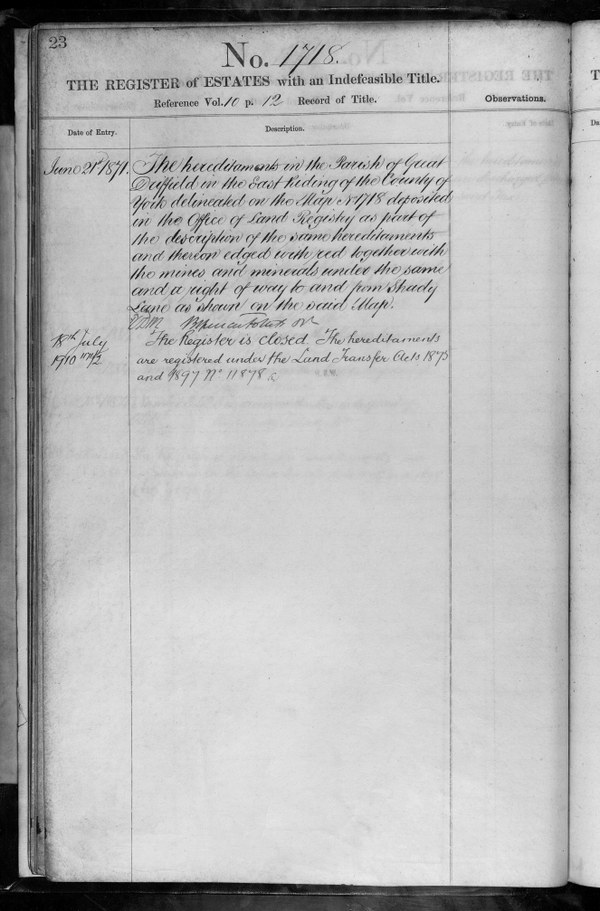 23
No. 1718.
THE REGISTER of ESTATES with an Indefeasible Title.
Reference Vol. 10 p. 12 Record of Title.
Observations.
Date of Entry.
Description.
June 21st 1871.
The hereditaments in the Parish of Great
Driffield in the East Riding of the County of
York delineated on the Map No 1718 deposited
in the Office of Land Registry as part of
the description of the same hereditaments
and thereon edged with red together with
the mines and minerals under the same
and a right of way to and from Shady
Lane as shewn on the said Map.
18th July
1910
The Register is closed. The hereditaments
are registered under the Land Transfer Acts 1875
and 1897 No 11878